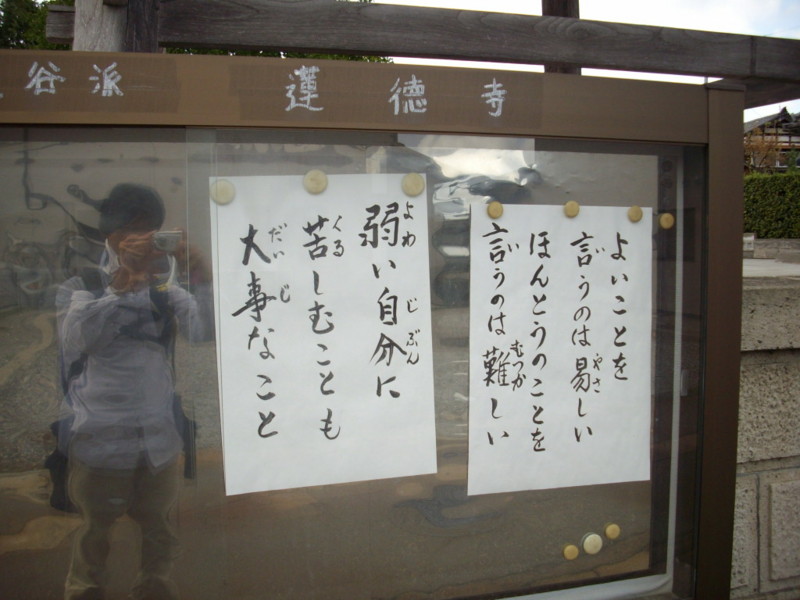 谷派 蓮德寺
よいことを
言うのは易しい
ほんとうのことを
言うのは難しい
弱い自分に
苦しむことも
大事なこと